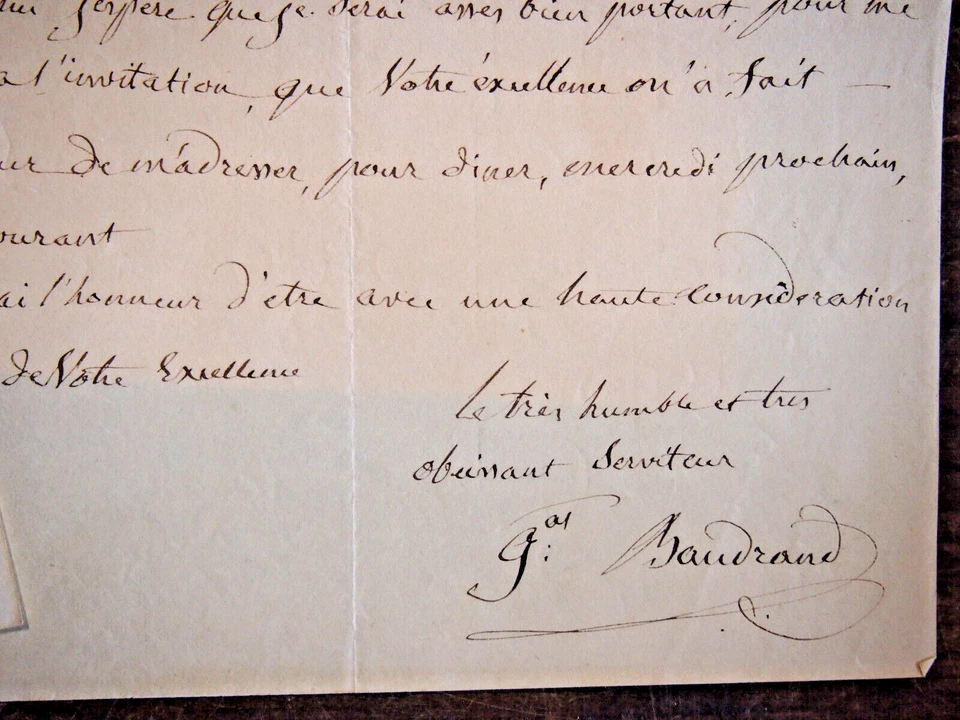 j'espère que je serai assés bien portant, pour me
a l'invitation, que Votre éxcellence m'a fait —
ur de m'adresser, pour diner, mercredi prochain,
ourant
ai l'honneur d'etre avec une haute considération
de Votre Excellence
Le très humble et tres
obeissant Serviteur
G.al Baudrand